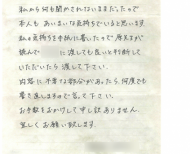 私から何も聞かされないままだったので
本人も あいまいな気持ちでいると思います。
私の気持ちを手紙に書いたので 厚文すが
読んで に渡しても良いと判断して
いただいたら 渡して下さい。
内容に不審な部分があったら、何度でも
書き直しますので 言って下さい。
お手数をおかけして申し訳ありません。
宜しくお願い致します。